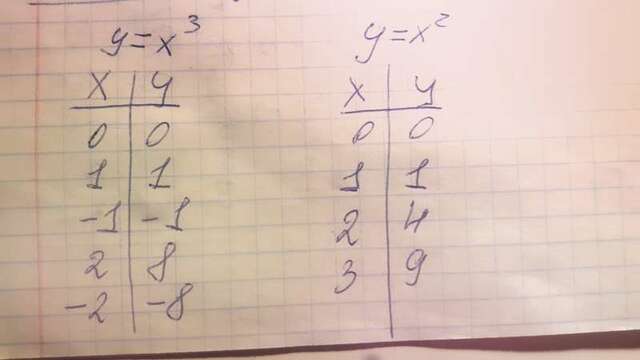 y=x³
x y
0 0
1 1
-1 -1
2 8
-2 -8
y=x²
x y
0 0
1 1
2 4
3 9